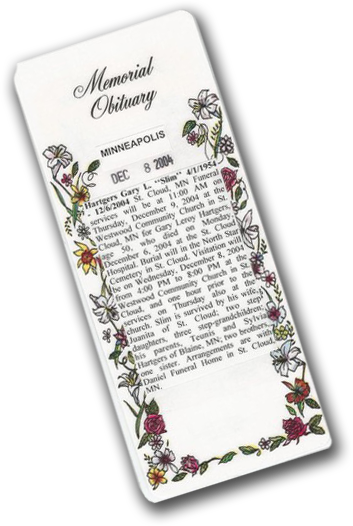 Memorial
Obituary
MINNEAPOLIS
DEC 8 2004
Hartgers Gary L. "Slim" 4/1/1954
- 12/6/2004 St. Cloud, MN Funeral
services will be at 11:00 AM on
Thursday, December 9, 2004 at the
Westwood Community Church in St.
Cloud, MN for Gary Leroy Hartgers,
age 50, who died on Monday,
December 6, 2004 at the St. Cloud
Hospital. Burial will in the North Star
Cemetery in St. Cloud. Visitation will
be on Wednesday, December 8, 2004
from 4:00 PM to 8:00 PM at the
Westwood Community Church in St.
Cloud, and one hour prior to the
services on Thursday also at the
church. Slim is survived by his wife,
Juanita of St. Cloud; two step
daughters, three step-grandchildren;
his parents, Teunis and Sylvia
Hartgers of Blaine, MN; two brothers;
one sister. Arrangements are with
Daniel Funeral Home in St. Cloud,
MN.